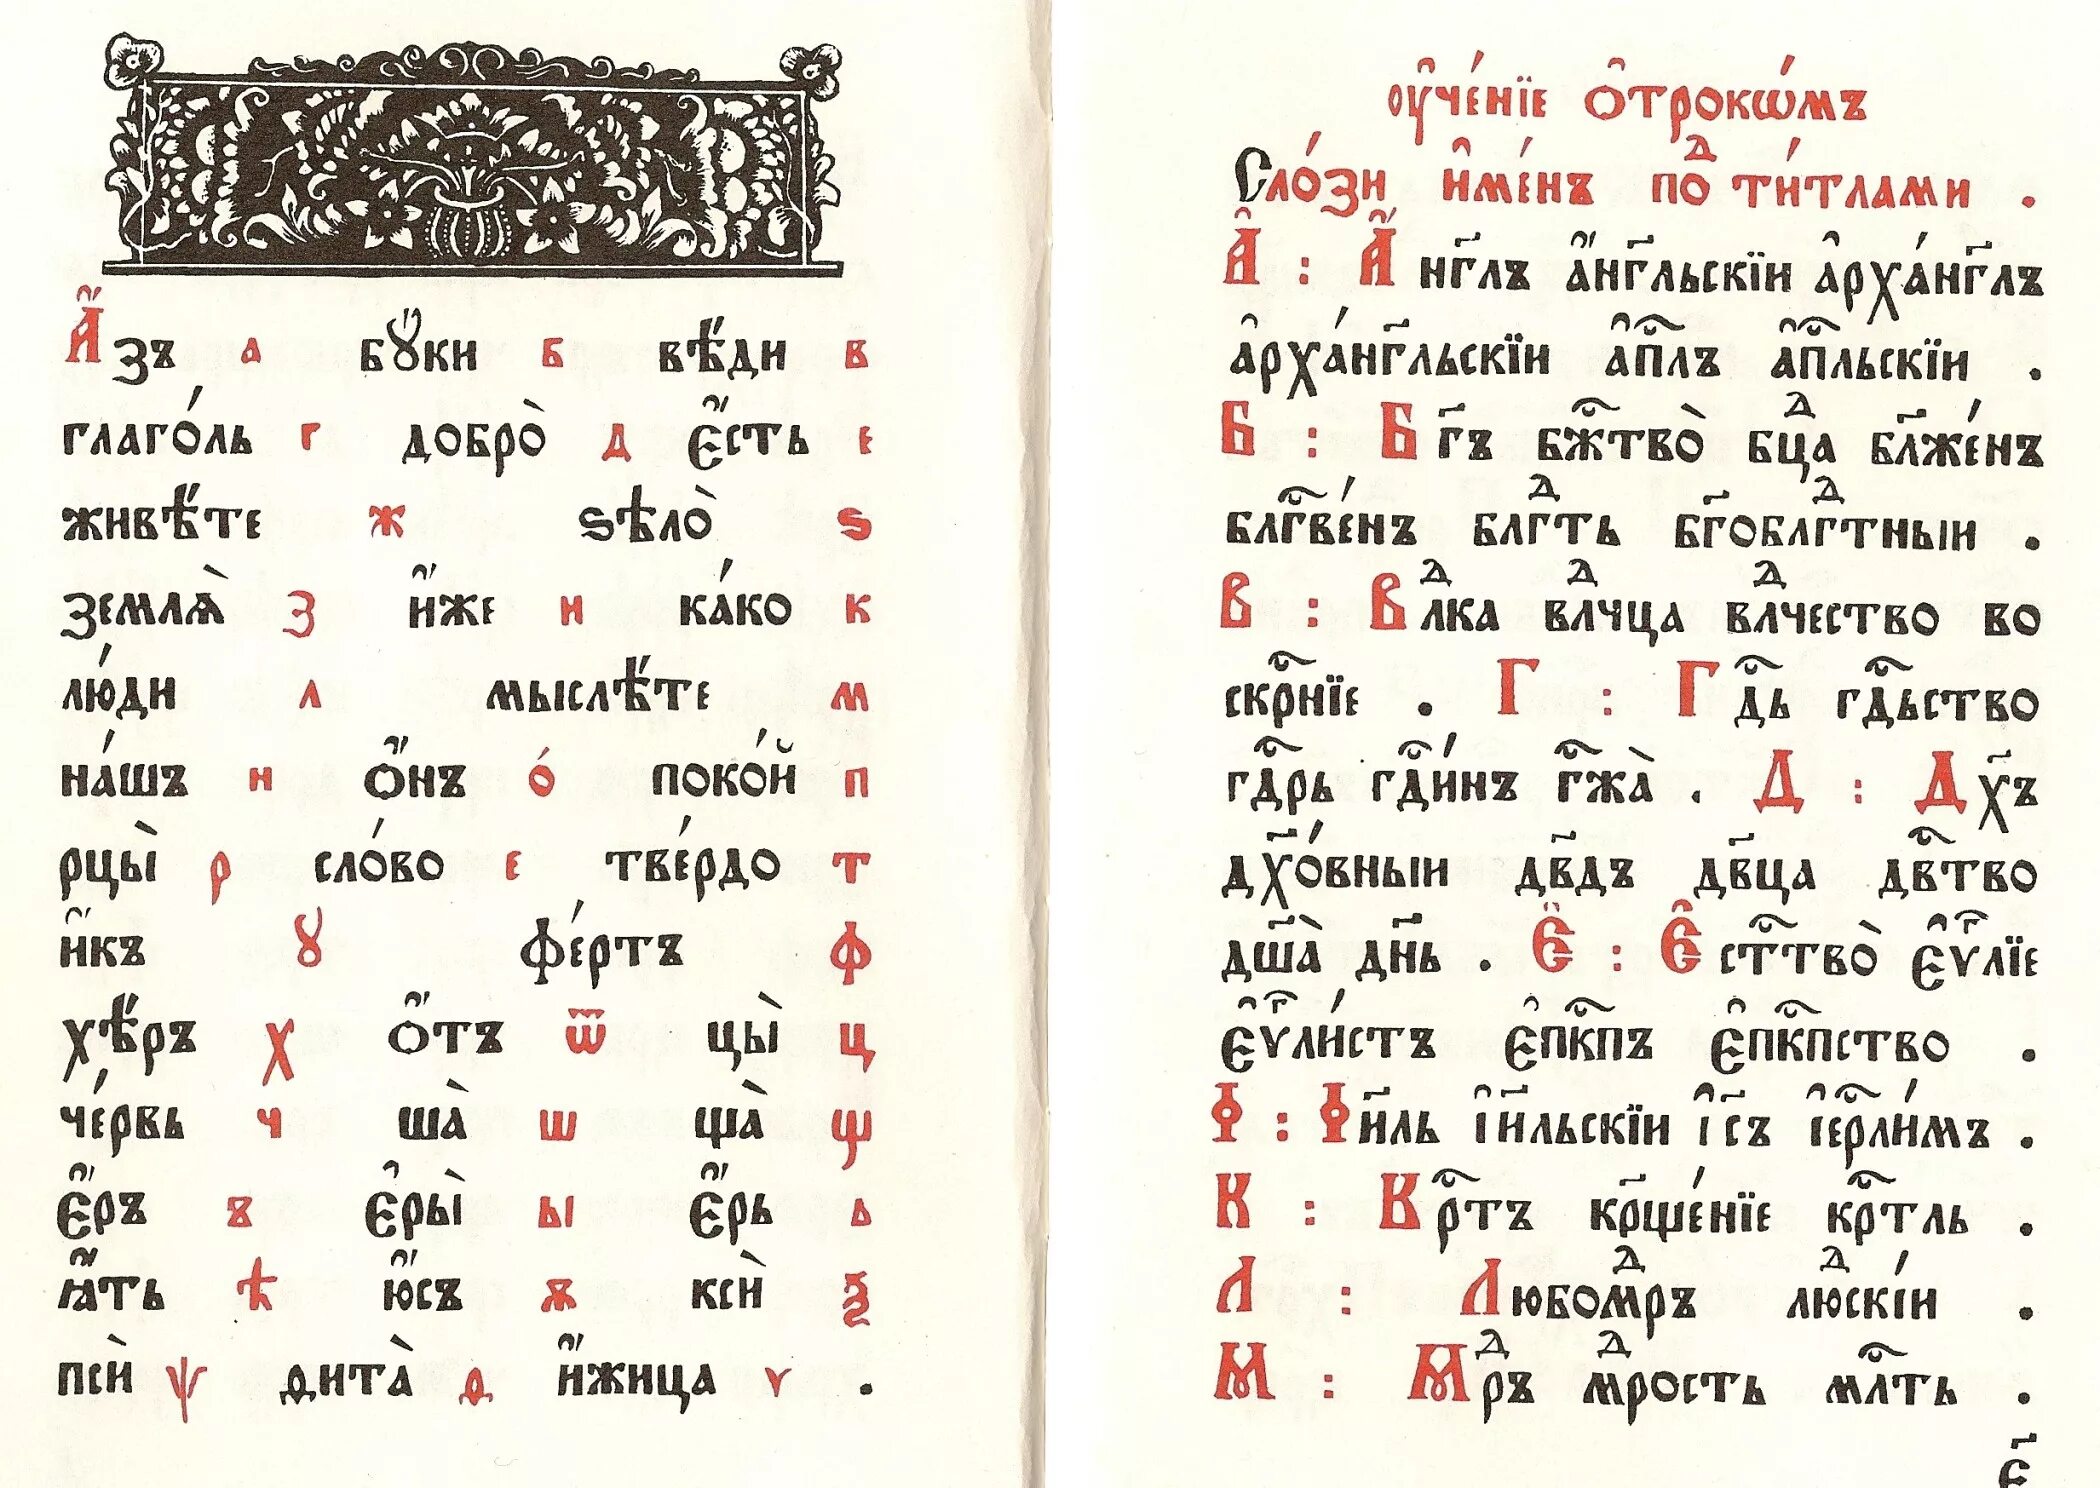 А҆́зъ а бꙋ́ки б вѣ́ди в
глаго́ль г добро̀ д є҆́сть е
живѣ́те ж ѕѣло̀ ѕ
землѧ̀ з и҆́же и ка́ко к
лю́ди л мыслѣ́те м
на́шъ н ѻ҆́нъ о́ поко́й п
рцы̀ р сло́во с тве́рдо т
и҆́къ ꙋ фе́ртъ ф
хѣ́ръ х ѻ҆́тъ ѿ цы̀ ц
че́рвь ч ша̀ ш ща̀ щ
є҆́ръ ъ є҆ры̀ ы є҆́рь ь
ꙗ҆́ть ѣ ю҆́съ ѫ ксѝ ѯ
псѝ ѱ ѳита̀ ѳ и҆́жица ѵ .
ᲂу҆че́нїе ѻ҆трокѡ́мъ
Сло́зи и҆ме́нъ поⷣ ти́тлами .
А҆ : А҆́нг҃лъ а҆́нг҃льскїи а҆рха́нг҃лъ
а҆рха́нг҃льскїи а҆пⷭ҇лъ а҆пⷭ҇льскїи .
Б : Бг҃ъ бжⷭ҇тво̀ бцⷣа бл҃же́нъ
блгⷭ҇ве́нъ блгⷣть бг҃облгⷣтныи .
В : Влⷣка влⷣчца влⷣчество во
скрⷭ҇нїе . Г : Гдⷭ҇ь гдⷭ҇ьство
гдⷭ҇рь гдⷭ҇и́нъ гжⷭ҇а̀ . Д : Дх҃ъ
дх҃о́вныи дв҃дъ дв҃ца двⷭ҇тво
дш҃а̀ дн҃ь . Є҆ : Є҆стⷭ҇тво̀ є҆ѵⷢ҇лїе
є҆ѵⷢ҇ли́стъ є҆пкⷭ҇пъ є҆пкⷭ҇пство .
І : І҆и҃ль і҆и҃льскїи і҆с҃ъ і҆ерⷭ҇ли́мъ .
К : Крⷭ҇тъ кр҃ще́нїе крⷭ҇тль .
Л : Любомⷣръ люⷣскі́и .
М : Мⷣръ мⷣрость млⷭ҇ть .
є҃